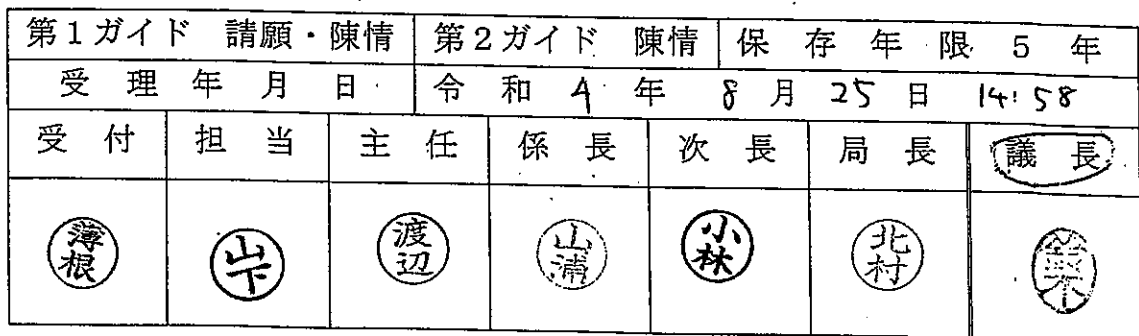 第1ガイド 請願・陳情 第2ガイド 陳情 保存年限 5年
受理年月日 令和4年8月25日 14:58
受付 担当 主任 係長 次長 局長 議長
薄根 山下 渡辺 山浦 小林 北村